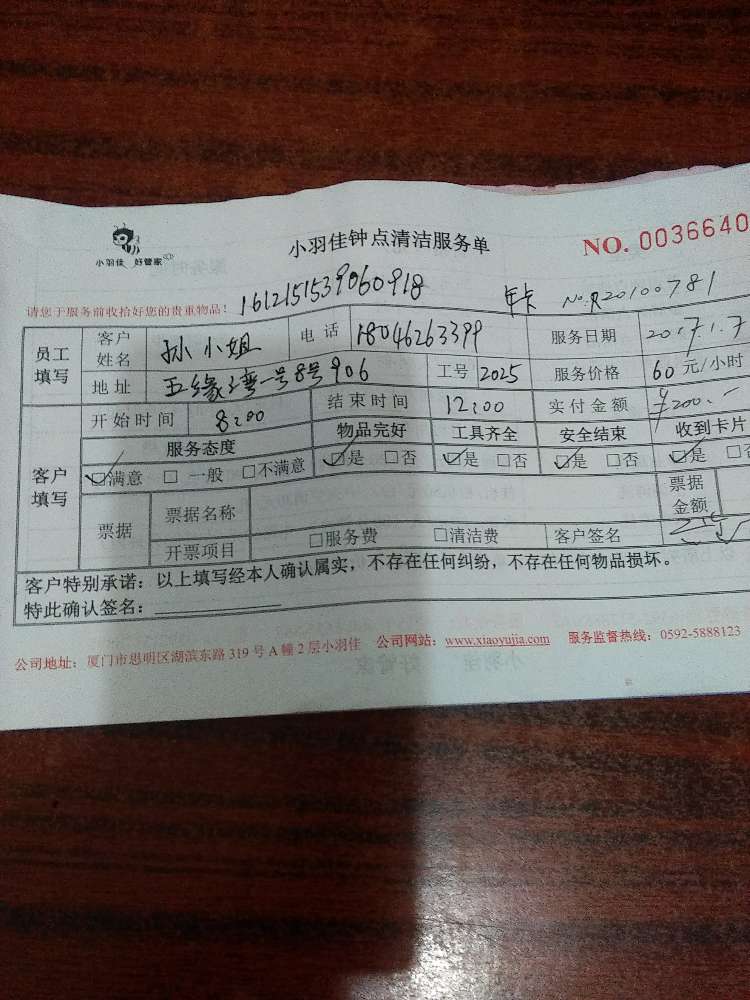 小羽佳 好管家
小羽佳钟点清洁服务单
NO. 0036640
请您于服务前收拾好您的贵重物品!
1612151539060918
年卡 No.R20100781
员工填写 客户姓名 孙小姐 电话 18046263399 服务日期 2017.1.7
地址 五缘湾一号8号906 工号 2025 服务价格 60元/小时
客户填写 开始时间 8:00 结束时间 12:00 实付金额 ¥200.-
服务态度 物品完好 工具齐全 安全结束 收到卡片
☑满意 □一般 □不满意 ☑是 □否 ☑是 □否 ☑是 □否 ☑是 □否
票据 票据名称 票据金额
开票项目 □服务费 □清洁费 客户签名
客户特别承诺:以上填写经本人确认属实,不存在任何纠纷,不存在任何物品损坏。
特此确认签名:
公司地址:厦门市思明区湖滨东路319号A幢2层小羽佳 公司网站:www.xiaoyujia.com 服务监督热线:0592-5888123